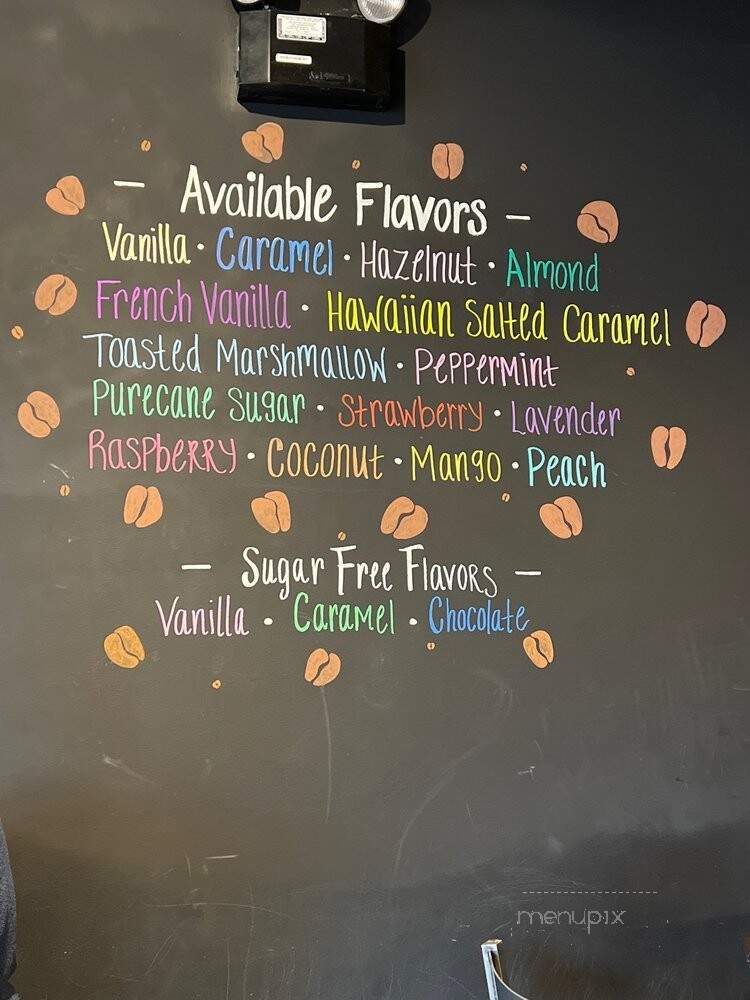 — Available Flavors —
Vanilla · Caramel · Hazelnut · Almond
French Vanilla · Hawaiian Salted Caramel
Toasted Marshmallow · Peppermint
Purecane Sugar · Strawberry · Lavender
Raspberry · Coconut · Mango · Peach
— Sugar Free Flavors —
Vanilla · Caramel · Chocolate
menupix